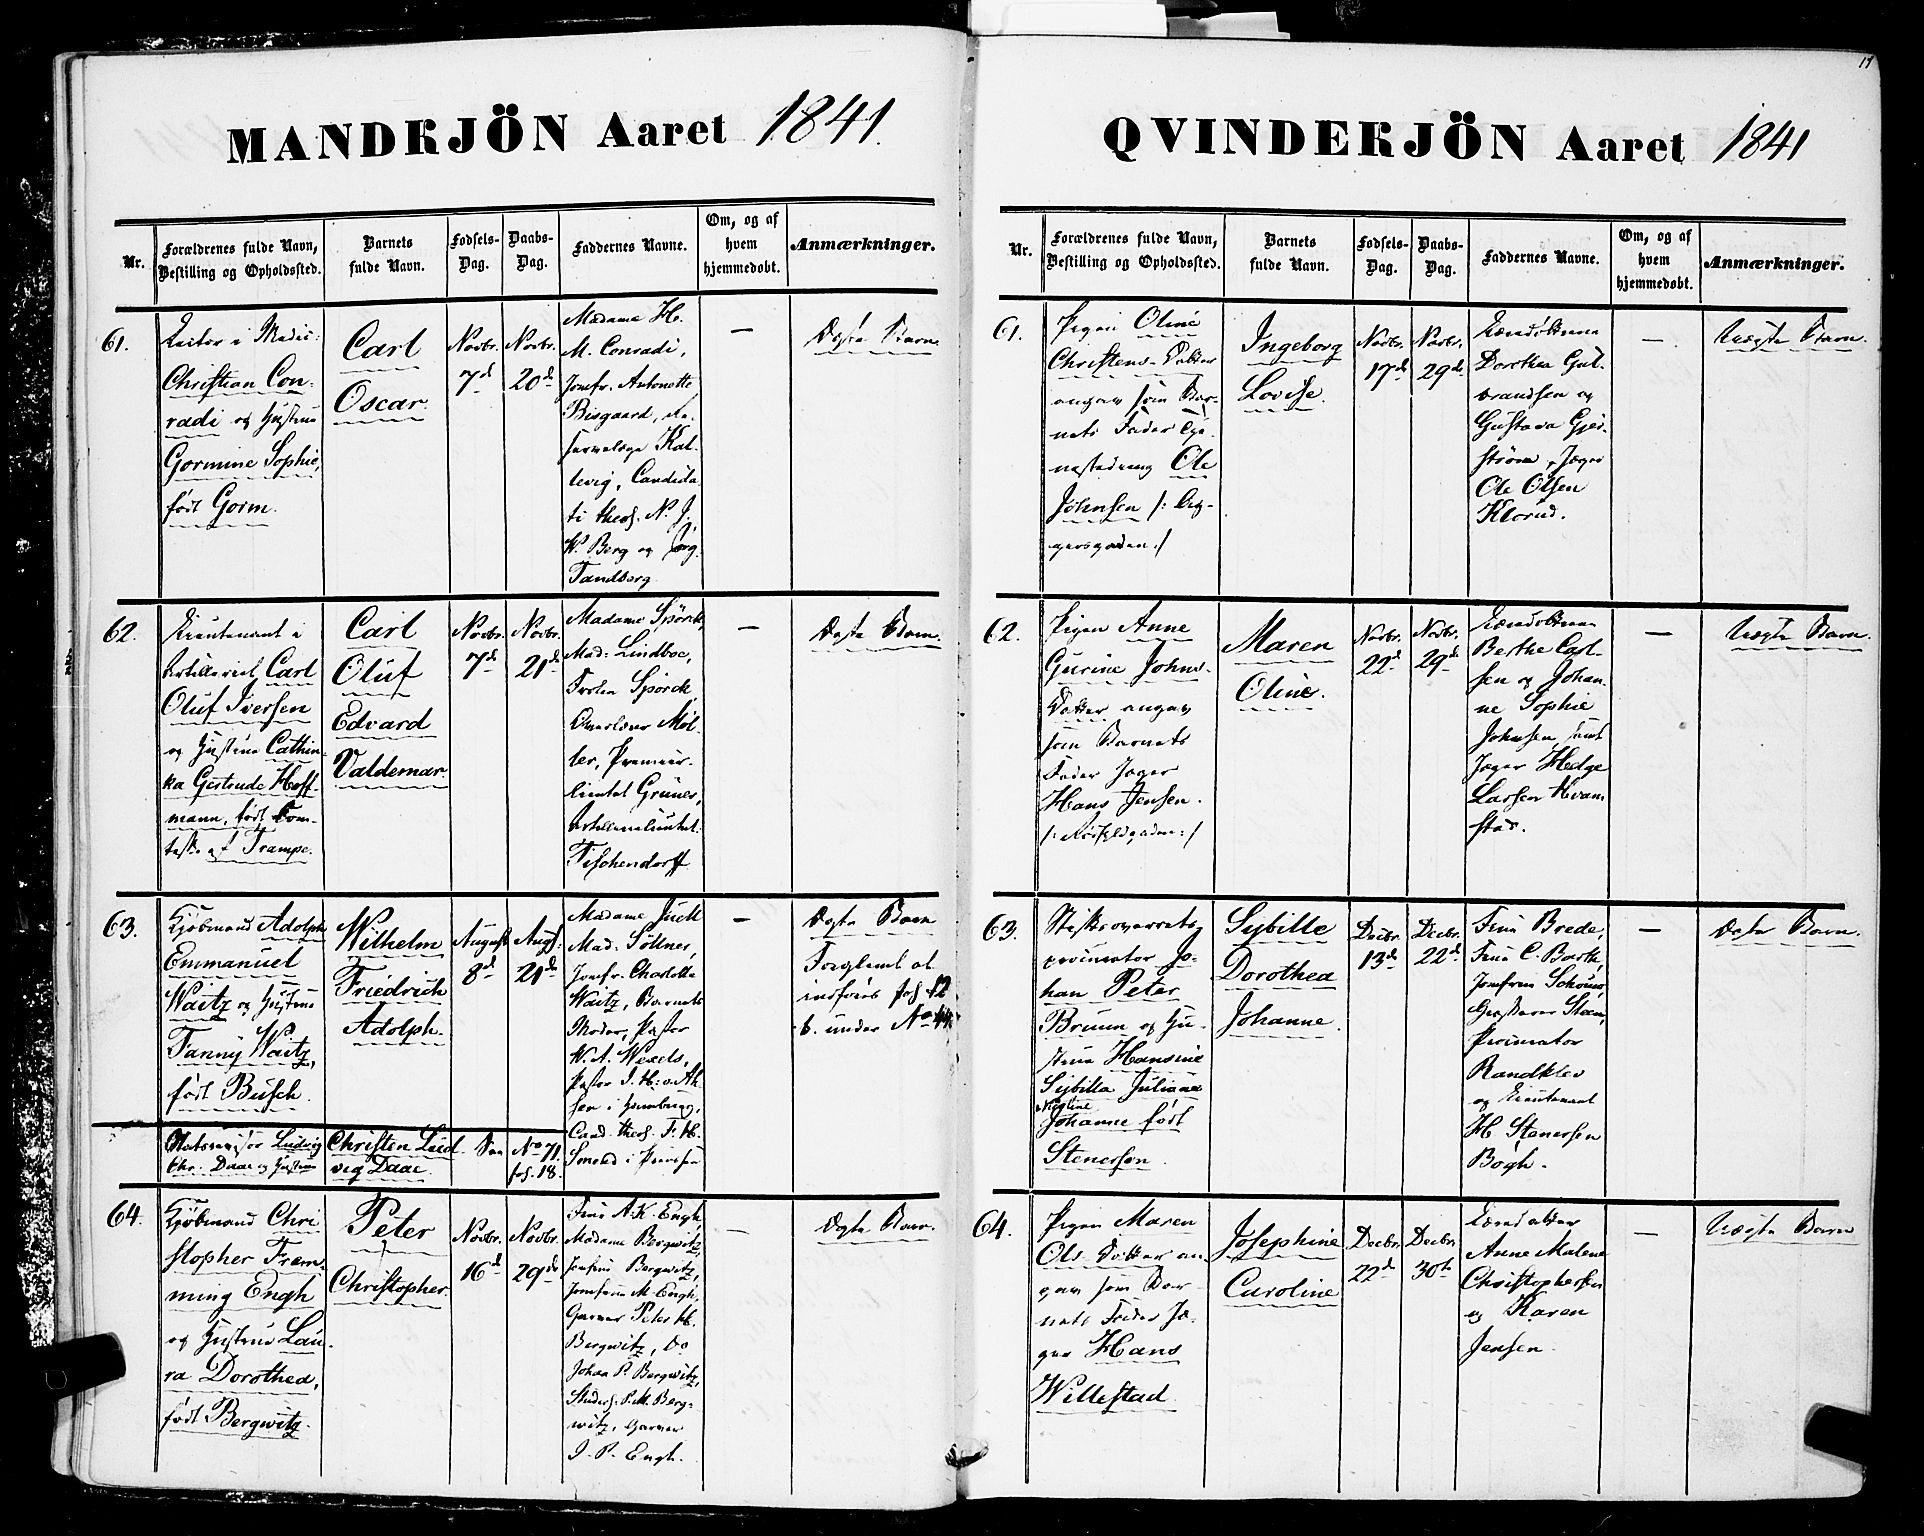 17
MANDKJÖN Aaret 1841.
Nr.
Forældrenes fulde Navn,
Bestilling og Opholdssted.
Barnets
fulde Navn.
Fødsels-
Dag.
Daabs-
Dag.
Faddernes Navne.
Om, og af
hvem
hjemmedøbt.
Anmærkninger.
61.
Lector i Medic:
Christian Con-
radi og Hustrue
Gormine Sophie,
født Gorm.
Carl
Oscar.
Novbr.
7d
Novbr.
20de
Madame H.
M. Conradi,
Jomfr. Antonette
Bisgaard,
Kal-
levig, Candida-
ti theol. N. J.
W. Berg og
Tandberg.
—
Ægte Barn
62.
Lieutenant i
Artilleriet Carl
Oluf Iversen
og Hustrue Cathin-
ka Gertrude Hoff-
mann, født Com-
tesse af Trampe.
Carl
Oluf
Edvard
Valdemar.
Novbr.
7d
Novbr.
21de
Madame Spörck,
Mad: Lindboe,
Frøken Spörck,
Overlærer Møl-
ler, Premier-
lieutnt Grüner,
Artillerielieutnt.
Tischendorff
—
Ægte Barn.
63.
Kjøbmand Adolph
Emmanuel
Waitz og Hustrue
Fanny Waitz,
født Busch.
Wilhelm
Friedrich
Adolph.
August
8d
Augs.
21de
Madame Juell
Mad. Söllner,
Jomfr. Charlotte
Waitz, Barnets
Moder, Pastor
W. A. Wexels,
Pastor J. H:
sen i Hamburg,
Cand. theol. F. H.
i
—
Ægte Barn
Forglemt at
indføres fol 12
b. under No 44.
Ludvig
Chr. Daae og Hustrue
Christen Lud-
vig Daae.
See
No 71.
fol. 18.
64.
Kjøbmand Chri-
stopher Frem-
ming Engh
og Hustrue Lau-
ra Dorothea,
født Bergwitz.
Peter
Christopher.
Novbr.
16d
Novbr.
29de
Frue A. K. Engh,
Madame Bergwitz,
Jomfrue Bergwitz,
Jomfrue M. Engh,
Garver Peter H.
Bergwitz, Do
Johan P. Bergwitz,
Studios. P. M. Berg-
witz, Garver
J. P. Engh.
—
Ægte Barn.
QVINDEKJÖN Aaret 1841
Nr.
Forældrenes fulde Navn,
Bestilling og Opholdssted.
Barnets
fulde Navn.
Fødsels-
Dag.
Daabs-
Dag.
Faddernes Navne.
Om, og af
hvem
hjemmedøbt.
Anmærkninger.
61.
Pigen Oline
Christens-Datter
angav som Bar-
nets Fader Tje-
nestedreng Ole
Johnsen /: Ag-
gersgaden :/
Ingeborg
Lovise.
Novbr.
17de
Novbr.
29de
Dorthea Gul-
brandsen og
Gustava Gjer-
strøm, Jæger
Ole Olsen
Klorud.
—
Uægte Barn.
62.
Pigen Anne
Gurine Johns-
Datter angav
som Barnets
Fader Jæger
Hans Jensen.
Maren
Oline.
Novbr.
22d
Novbr.
29de
Berthe Carl-
sen og Johan-
ne Sophie
Johnsen samt
Jæger Helge
Larsen Kvam-
stad.
—
Uægte Barn.
63.
Stiftsoverrets-
procurator Jo-
han Peter
Bruun og Hu-
strue Hansine
Sybilla Juliane
Nicoline
Johanne født
Stenersen
Sybille
Dorothea
Johanne.
Decbr.
13de
Decbr.
22de
Frue Brede,
Frue C. Barth,
Jomfrue Schous,
Steen,
Procurator
Randklev
og Lieutenant
H Stenersen
Bøgh.
—
Ægte Barn.
64.
Pigen Maren
Ols-Datter an-
gav som Bar-
nets Fader Jæ-
ger Hans
Willestad.
Josephine
Caroline
Decbr.
22d
Decbr.
30te
Anne Malene
Christophersen
og Karen
Jensen.
—
Uægte Barn